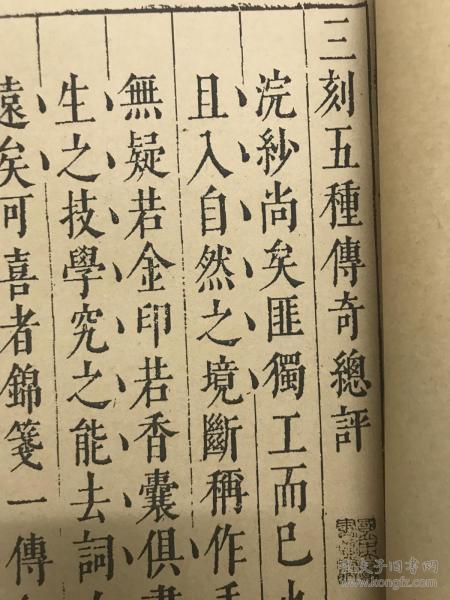 三刻五種傳奇總評
浣紗尚矣匪獨工而已
且入自然之境斷稱作
無疑若金印若香囊俱
生之技學究之能去詞
遠矣可喜者錦箋一傳
孔夫子旧书网